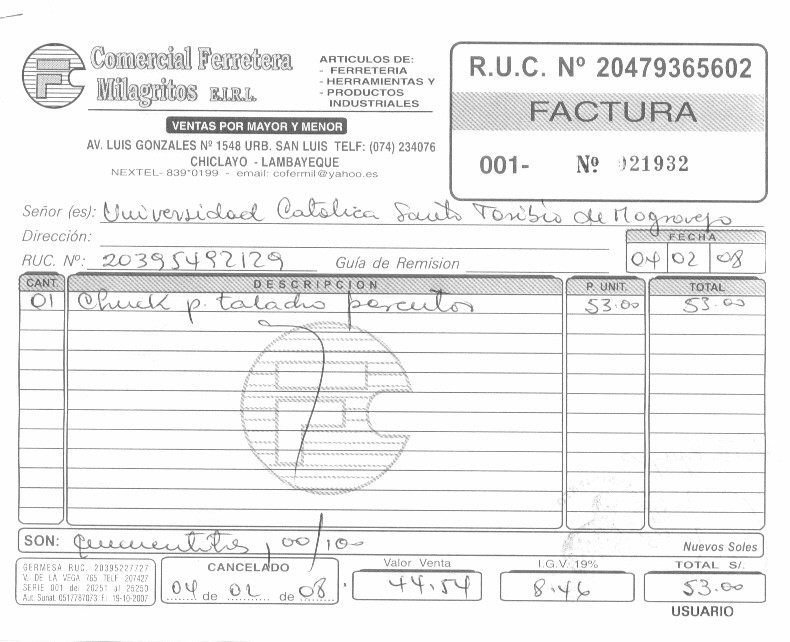 Comercial Ferretera
Milagritos E.I.R.L.
ARTICULOS DE:
- FERRETERIA
- HERRAMIENTAS Y
- PRODUCTOS
INDUSTRIALES
VENTAS POR MAYOR Y MENOR
AV. LUIS GONZALES Nº 1548 URB. SAN LUIS TELF: (074) 234076
CHICLAYO - LAMBAYEQUE
NEXTEL- 839*0199 - email: cofermil@yahoo.es
R.U.C. Nº 20479365602
FACTURA
001- Nº 021932
Señor (es): Universidad Catolica Santo Toribio de Mogrovejo
Dirección:
FECHA
RUC. Nº: 20395492129 Guía de Remision 04 02 08
CANT. DESCRIPCION P. UNIT. TOTAL
01 Chuck p. taladro percutor 53.00 53.00
SON: Cincuentitres, 00/100
Nuevos Soles
GERMESA RUC. 20395227727
V. DE LA VEGA 765 TELF 207427
SERIE 001 del 20251 al 25250
Aut. Sunat 0517787073 F.I. 19-10-2007
CANCELADO
04 de 02 de 08
Valor Venta
44.54
I.G.V. 19%
8.46
TOTAL S/.
53.00
USUARIO